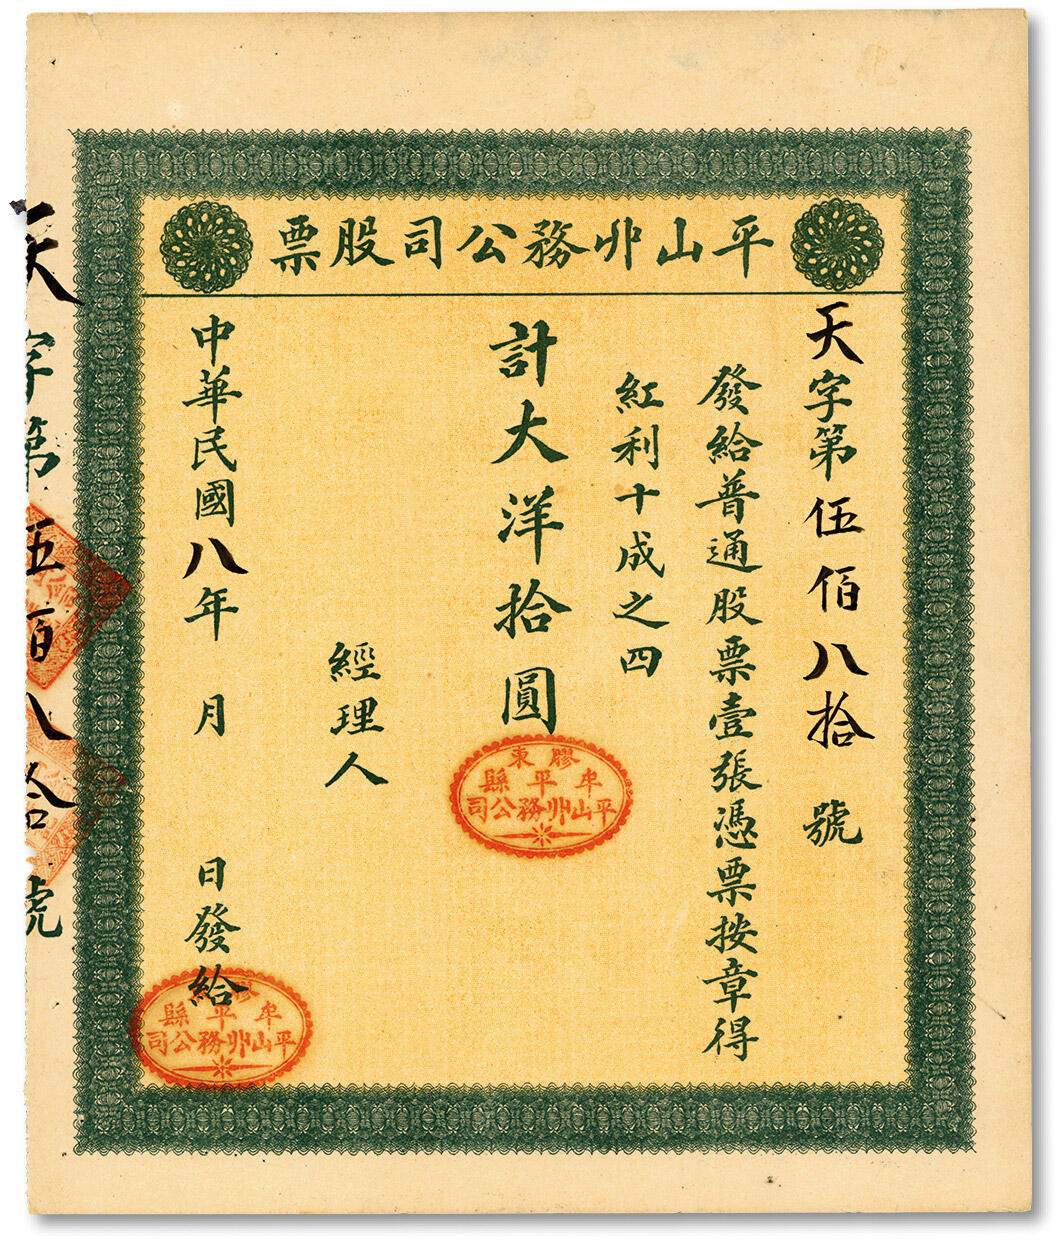 平山丱務公司股票
天字第伍佰八拾號
發給普通股票壹張憑票按章得
紅利十成之四
計大洋拾圓
膠東
牟平縣
平山丱務公司
經理人
中華民國八年 月 日發給
牟平縣
平山丱務公司
天字第伍佰八拾號